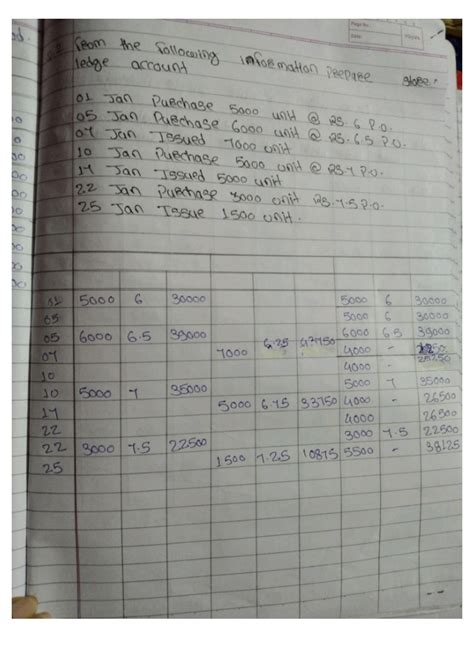 Page No.
Date
From the following information prepare store
ledge account
01 Jan Purchase 5000 unit @ RS. 6 P.O.
05 Jan Purchase 6000 unit @ RS. 6.5 P.O.
07 Jan Issued 7000 unit
10 Jan Purchase 5000 unit @ RS. 7 P.O.
17 Jan Issued 5000 unit
22 Jan Purchase 3000 unit RS. 7.5 P.O.
25 Jan Issue 1500 unit.
01 5000 6 30000 5000 6 30000
05 5000 6 30000
05 6000 6.5 39000 6000 6.5 39000
07 7000 6.25 43750 4000 -
10 4000 - 25250
10 5000 7 35000 5000 7 35000
17 5000 6.75 33750 4000 - 26500
22 4000 26500
22 3000 7.5 22500 3000 7.5 22500
25 1500 7.25 10875 5500 - 38125